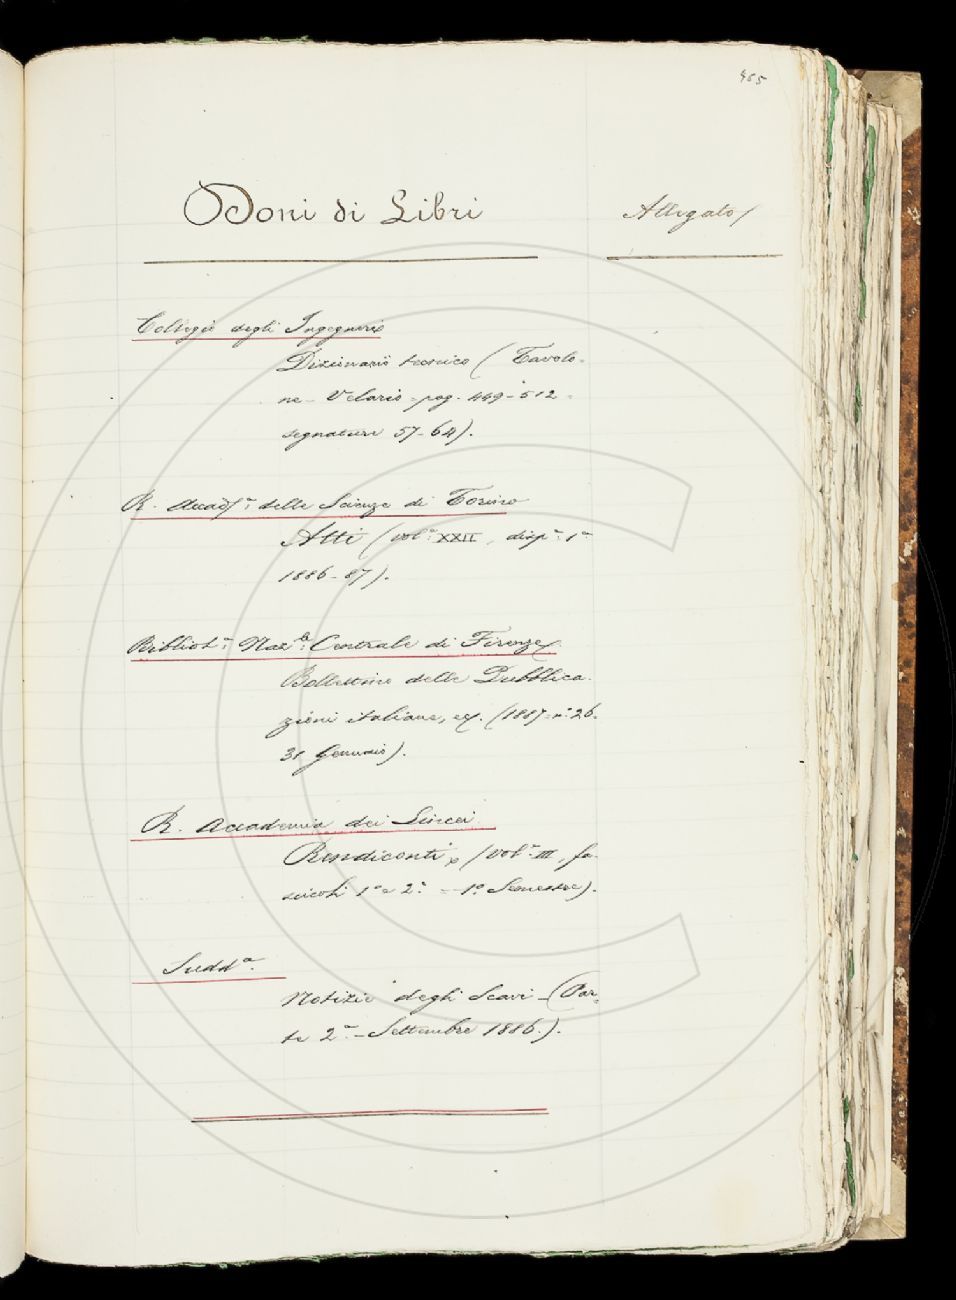 465
Doni di Libri
Allegato
Collegio degli Ingegneri
Dizionario tecnico (Tavolo-
ne - Velario - pag. 449-512 -
segnature 57-64).
R. Accad.ª delle Scienze di Torino
Atti (vol.e XXII, disp.ª 1ª
1886-87).
Bibliot.ª Naz.le Centrale di Firenze
Bollettino delle Pubblica-
zioni italiane, (1887 - n.º 26.
31 Gennaio).
R. Accademia dei Lincei
Rendiconti (vol.e III, fa-
scicoli 1º e 2º - 1º Semestre).
Sudd.ª
Notizie degli Scavi - (Par-
te 2ª - Settembre 1886.).